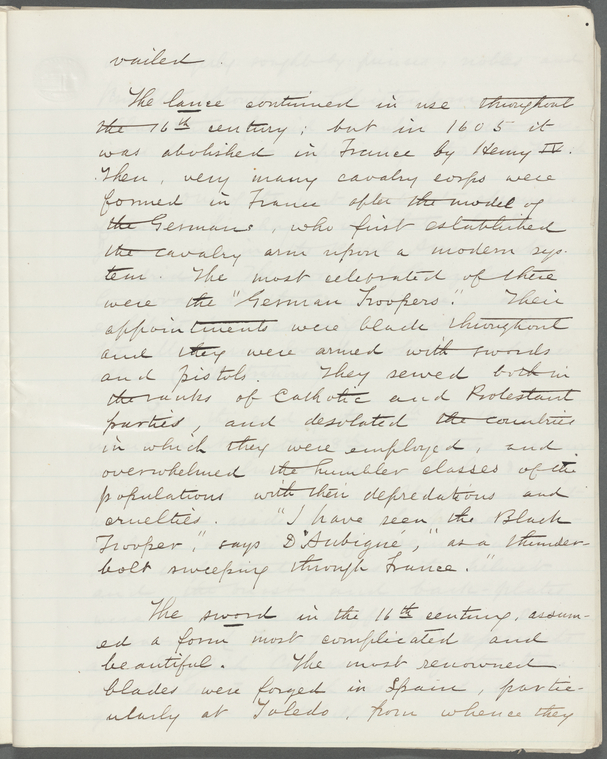 vailed.
The lance continued in use throughout
the 16th century; but in 1605 it
was abolished in France by Henry IV.
Then, very many cavalry corps were
formed in France after the model of
the Germans, who first established
the cavalry arm upon a modern sys-
tem. The most celebrated of these
were the "German Troopers". Their
appointments were black throughout
and they were armed with swords
and pistols. They served both in
the ranks of Catholic and Protestant
parties, and desolated the countries
in which they were employed, and
overwhelmed the humbler classes of the
populations with their depredations and
cruelties. "I have seen the Black
Trooper", says D'Aubigne, "as a thunder-
bolt sweeping through France."
The sword in the 16th century, assum-
ed a form most complicated and
beautiful. The most renowned
blades were forged in Spain, partic-
ularly at Toledo, from whence they